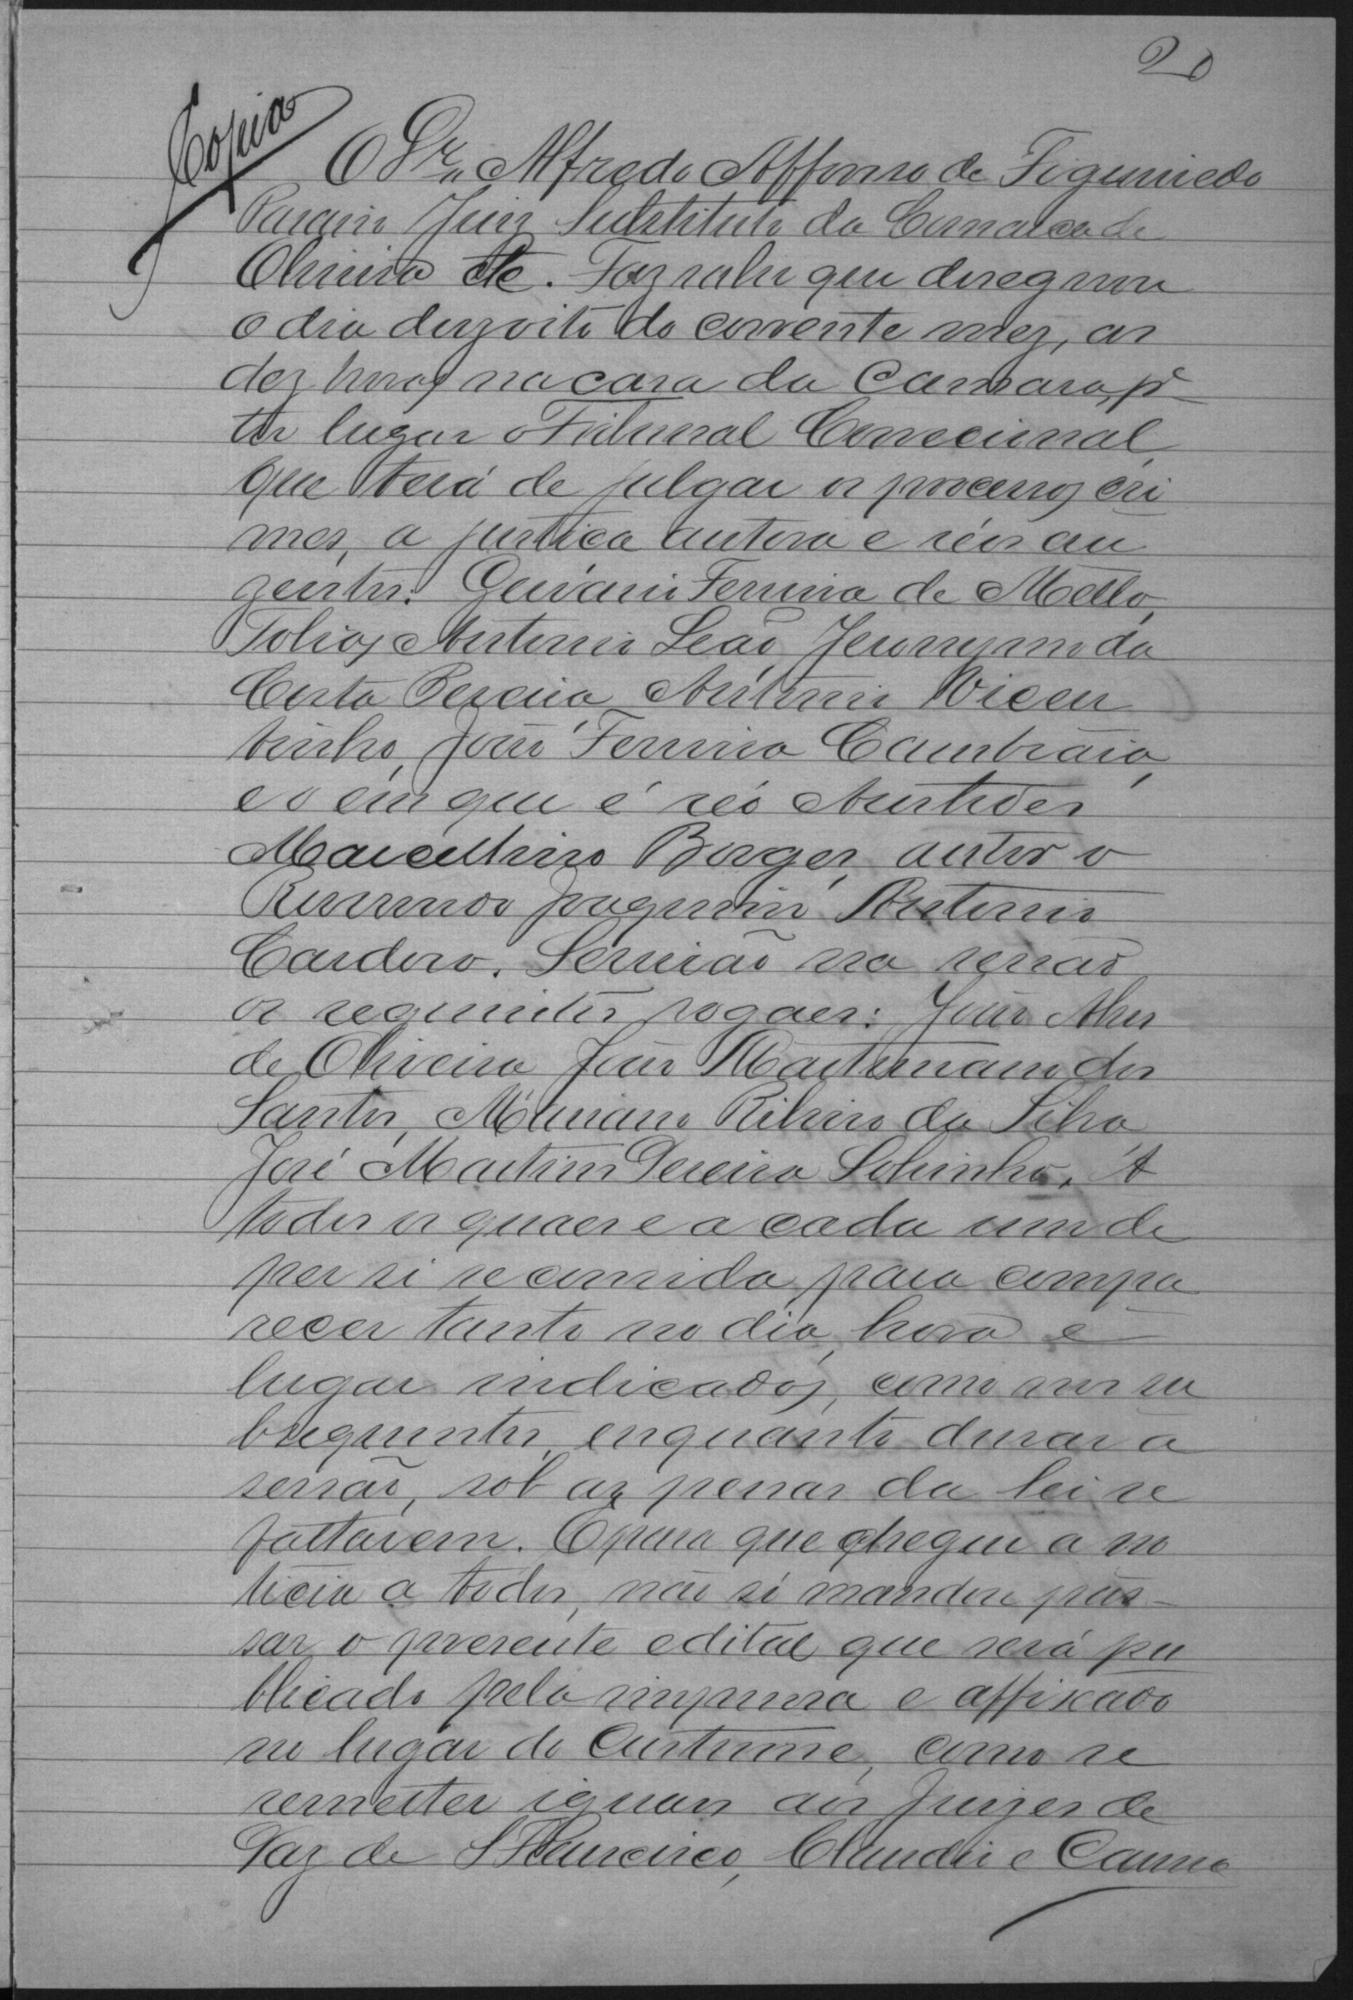 20
Copia
O Dr. Alfredo Affonso de Figueiredo
Juiz Substituto da Comarca de
Oliveira etc. Faz saber que designou
o dia dezoito do corrente mez, as
dez horas na casa da Camara, pª
ter lugar o Tribunal Correcional,
que terá de julgar os processos cri
mes, a justiça autora e réos au
zentes: Ferreira de Mello,
Tobias Antonio Leão, Jeronymo da
Costa Pereira, Antonio Vicen
tinho, João Ferreira Cambraia,
e o em que é réo Aristides
Marcelliano Borges, autor o
Reverendo Joaquim Antonio
Cardoso. Servirão na sessão
os seguintes vogaes: João Alves
de Oliveira João Martiniano dos
Santos, Mariano Ribeiro da Silva
José Martins Pereira Sobrinho. A
todos os quaes e a cada um de
per si se convida para compa
recer tanto no dia, hora e
lugar indicados, como nos su
bsequentes, enquanto durar a
sessão, sob as penas da lei se
faltarem. E para que chegue a no
ticia a todos, não só mandou pas-
sar o presente edital que será pu
blicado pela imprensa e affixado
no lugar do custume, como se
remetter iguaes aos Juizes de
Paz de S Francisco, Claudio e Carmo